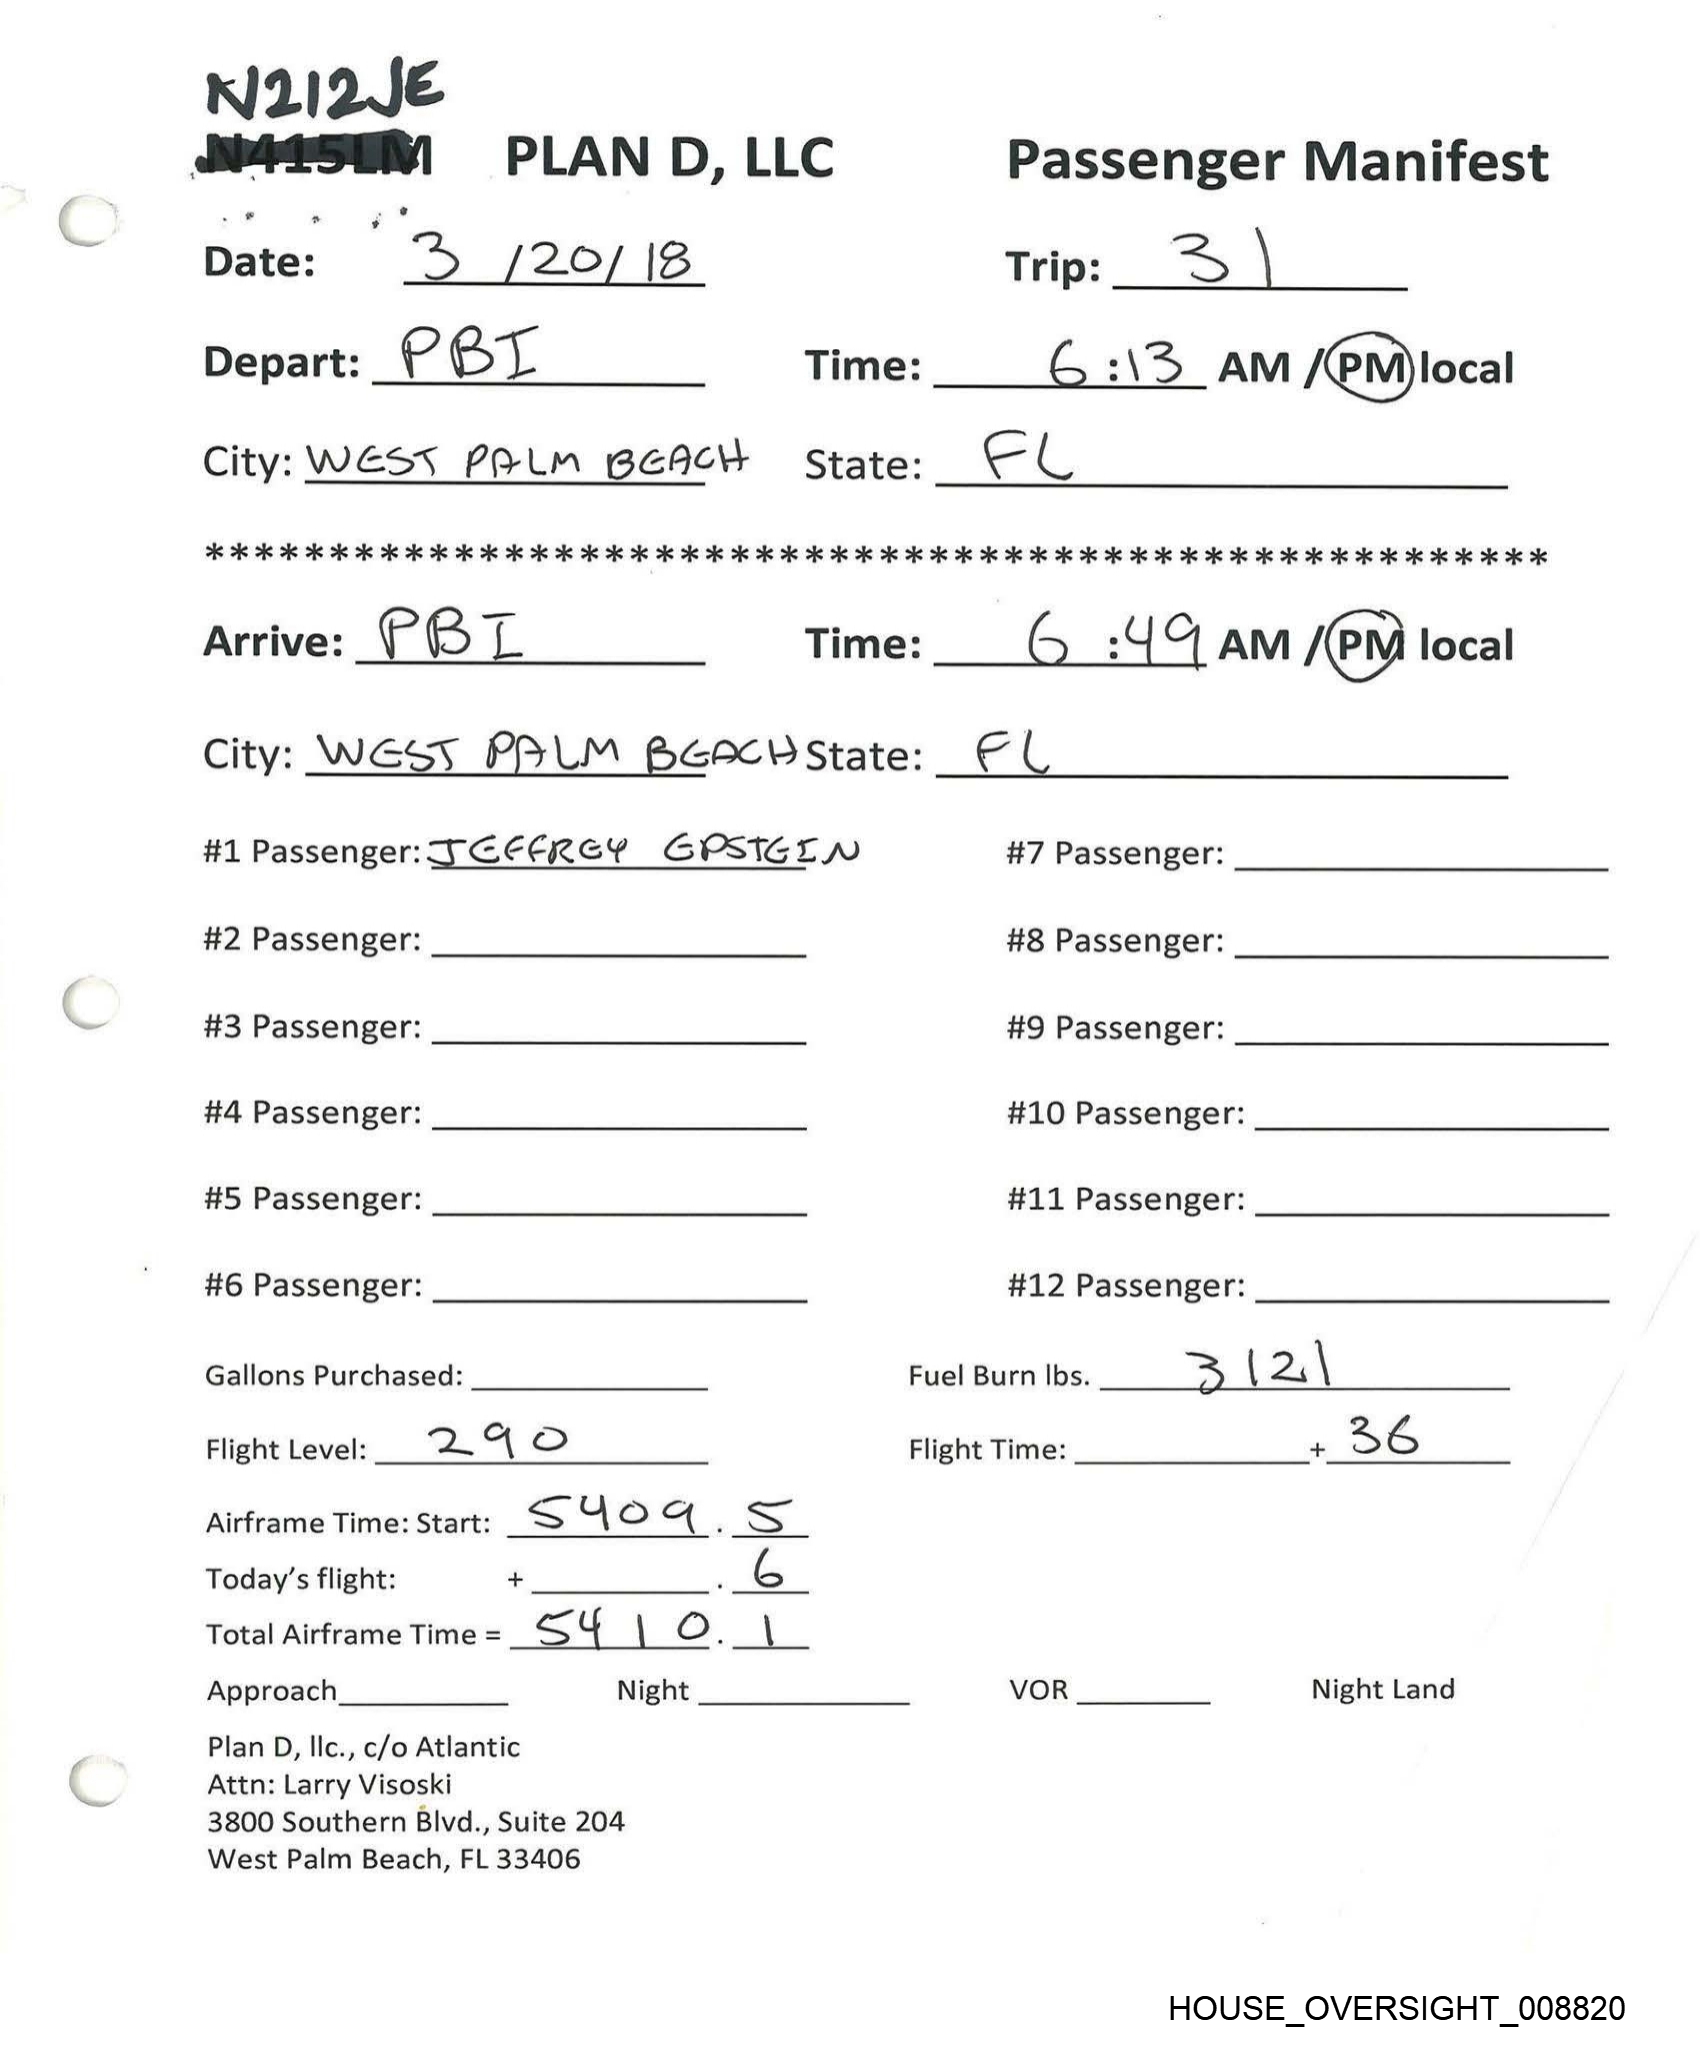 N212JE
N415LM PLAN D, LLC Passenger Manifest
Date: 3 /20/ 18 Trip: 31
Depart: PBI Time: 6 :13 AM / PM local
City: WEST PALM BEACH State: FL
******************************************************
Arrive: PBI Time: 6 :49 AM / PM local
City: WEST PALM BEACH State: FL
#1 Passenger: JEFFREY EPSTEIN #7 Passenger:
#2 Passenger: #8 Passenger:
#3 Passenger: #9 Passenger:
#4 Passenger: #10 Passenger:
#5 Passenger: #11 Passenger:
#6 Passenger: #12 Passenger:
Gallons Purchased: Fuel Burn lbs. 3121
Flight Level: 290 Flight Time: + 36
Airframe Time: Start: 5409 . 5
Today's flight: + . 6
Total Airframe Time = 5410 . 1
Approach Night VOR Night Land
Plan D, llc., c/o Atlantic
Attn: Larry Visoski
3800 Southern Blvd., Suite 204
West Palm Beach, FL 33406
HOUSE_OVERSIGHT_008820